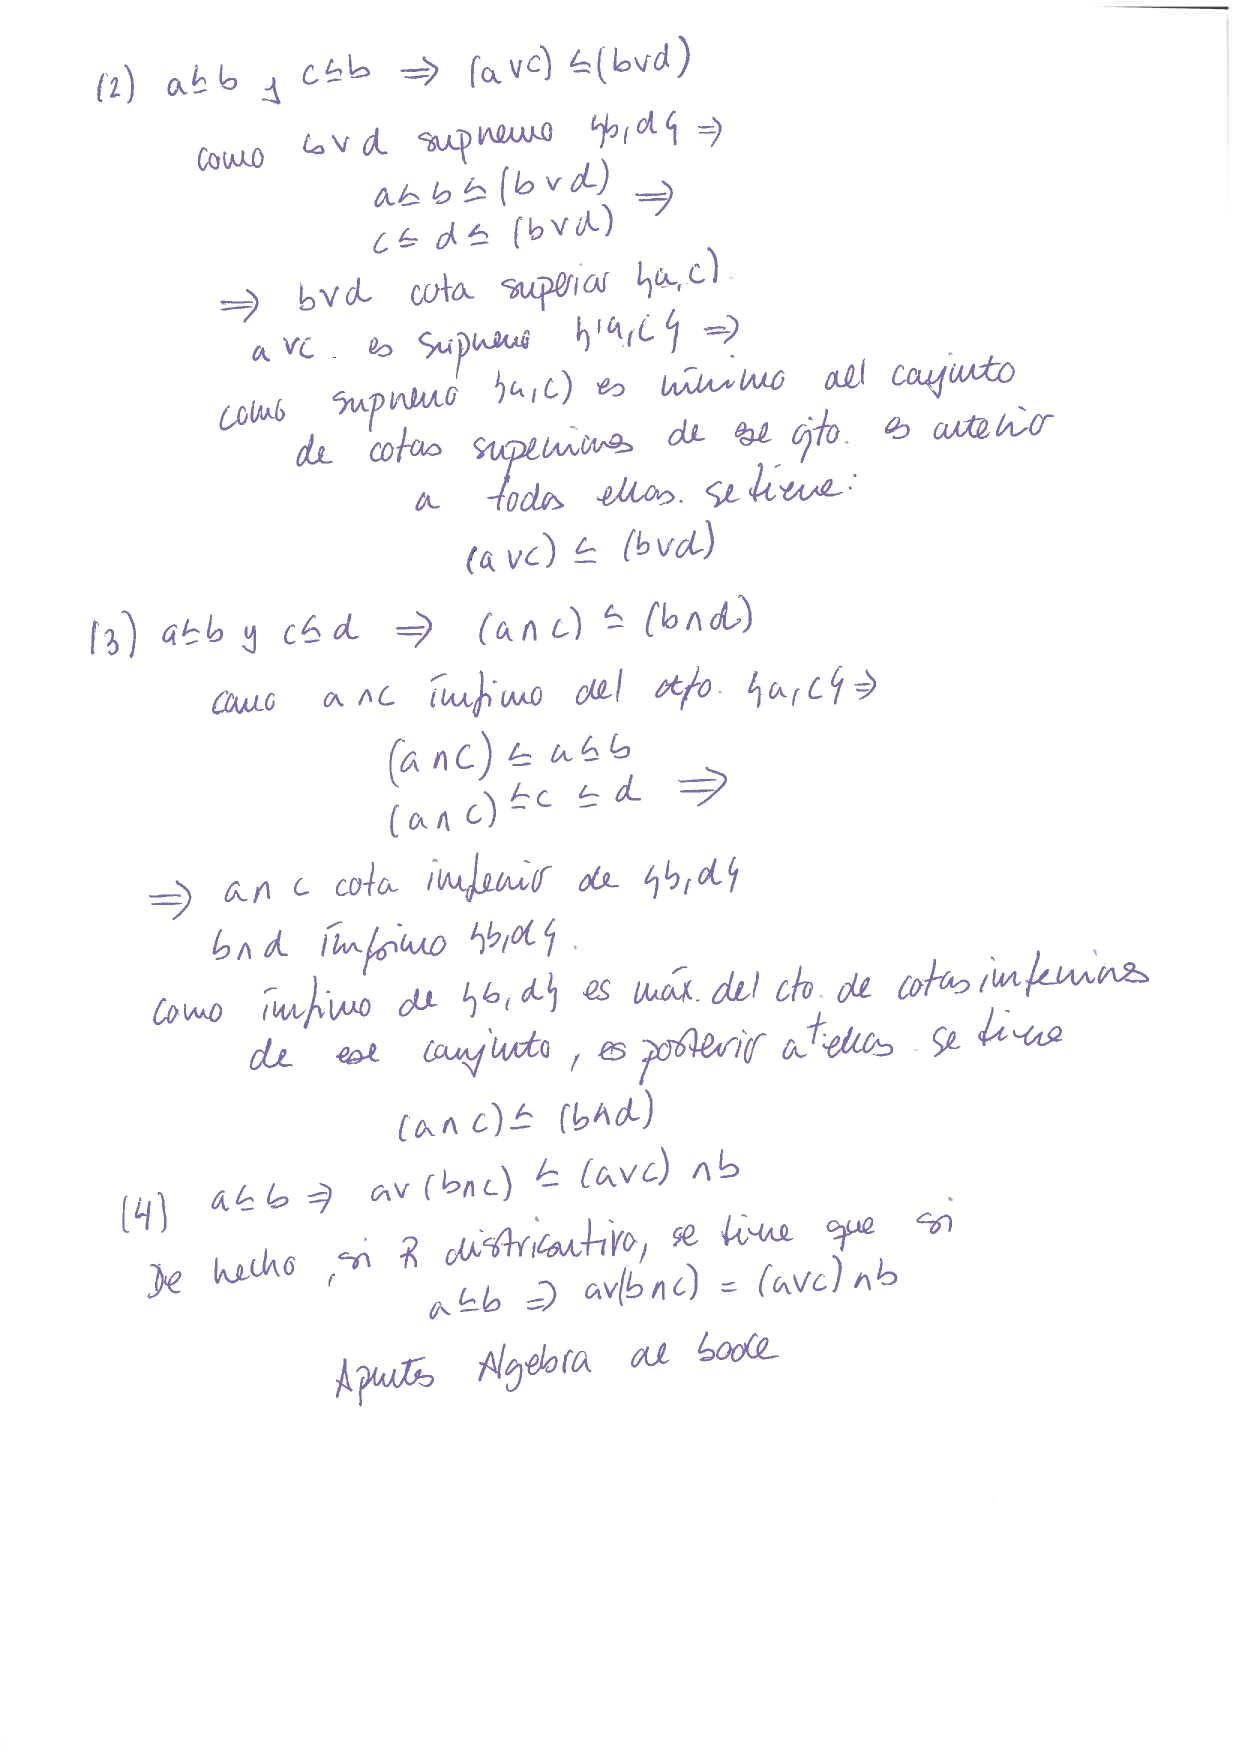 (2) a ≤ b y c ≤ b ⇒ (a ∨ c) ≤ (b ∨ d)
como b ∨ d supremo {b, d} ⇒
a ≤ b ≤ (b ∨ d)
c ≤ d ≤ (b ∨ d) ⇒
⇒ b ∨ d cota superior {a, c}
a ∨ c. es supremo {a, c} ⇒
como supremo {a, c} es mínimo del conjunto
de cotas superiores de ese cjto. es anterior
a todas ellas. se tiene:
(a ∨ c) ≤ (b ∨ d)
(3) a ≤ b y c ≤ d ⇒ (a ∧ c) ≤ (b ∧ d)
como a ∧ c ínfimo del cto. {a, c} ⇒
(a ∧ c) ≤ a ≤ b
(a ∧ c) ≤ c ≤ d ⇒
⇒ a ∧ c cota inferior de {b, d}
b ∧ d ínfimo {b, d}.
como ínfimo de {b, d} es máx. del cto. de cotas inferiores
de ese conjunto, es posterior a t. ellas. se tiene
(a ∧ c) ≤ (b ∧ d)
(4) a ≤ b ⇒ a ∨ (b ∧ c) ≤ (a ∨ c) ∧ b
De hecho, si R distributivo, se tiene que si
a ≤ b ⇒ a ∨ (b ∧ c) = (a ∨ c) ∧ b
Apuntes Algebra de boole